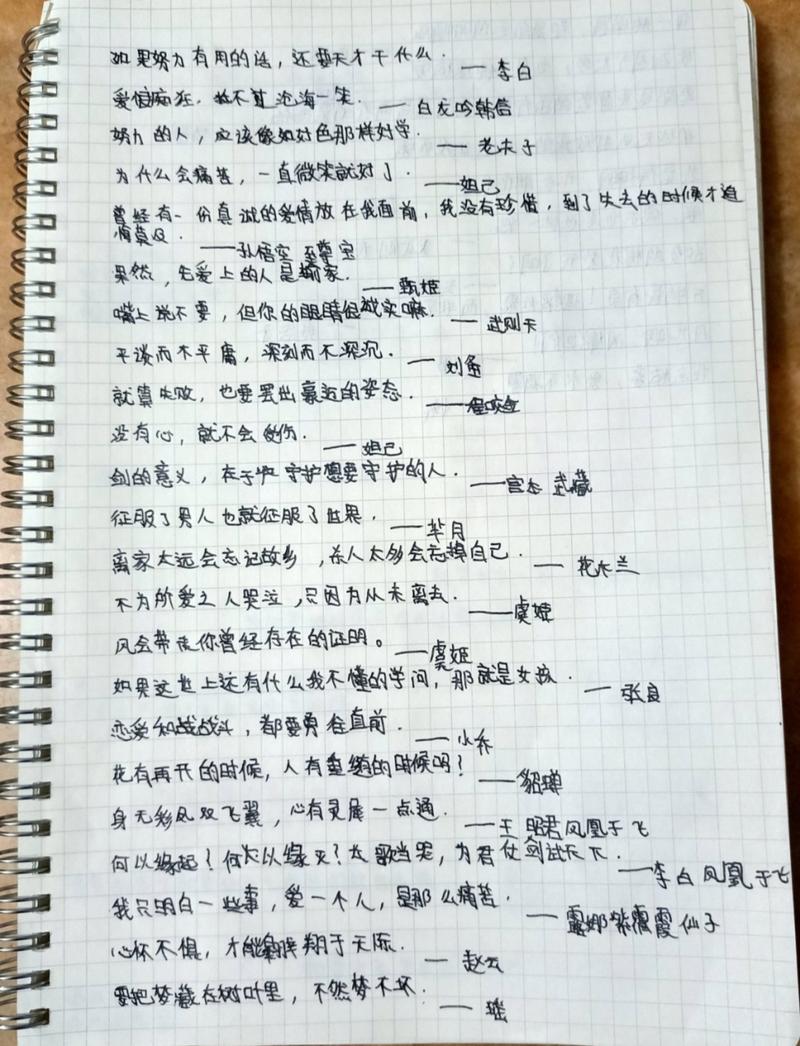 如果努力有用的话，还要天才干什么. —李白
爱恨痴狂，敌不过沧海一笑. —白龙吟韩信
努力的人，应该像好色那样好学. —老夫子
为什么会痛苦，一直微笑就好了. —妲己
曾经有一份真诚的爱情放在我面前，我没有珍惜，到了失去的时候才追
悔莫及. —孙悟空 至尊宝
果然，先爱上的人是输家. —甄姬
嘴上说不要，但你的眼睛很诚实嘛. —武则天
平淡而不平庸，深刻而不深沉. —刘备
就算失败，也要摆出豪迈的姿态. —程咬金
没有心，就不会受伤. —妲己
剑的意义，在于守护想要守护的人. —宫本 武藏
征服了男人也就征服了世界. —芈月
离家太远会忘记故乡，杀人太多会忘掉自己. —花木兰
不为所爱之人哭泣，只因为从未离去. —虞姬
风会带走你曾经存在的证明。 —虞姬
如果这世上还有什么我不懂的学问，那就是女孩. —张良
恋爱和战战斗，都要勇往直前. —小乔
花有再开的时候，人有重逢的时候吗？ —貂蝉
身无彩凤双飞翼，心有灵犀一点通. —王昭君凤凰于飞
何以缘起？何以缘灭？长歌当哭，为君仗剑试天下. —李白凤凰于飞
我只明白一些事，爱一个人，是那么痛苦. —露娜紫霞仙子
心怀不惧，才能翱翔于天际. —赵云
要把梦藏在树叶里，不然梦不坏. —瑶